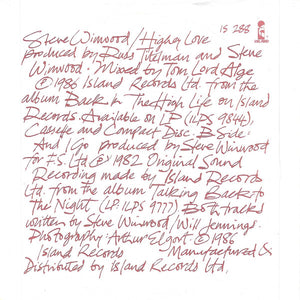 IS 288
Steve Winwood / Higher Love
produced by Russ Titelman and Steve
Winwood: Mixed by Tom Lord Alge
℗1986 Island Records Ltd. from the
album Back In The High Life on Island
Records. Available on LP (ILPS 9844),
Cassette and Compact Disc: B Side:
And I Go produced by Steve Winwood
for F.S. Ltd ℗1982 Original Sound
Recording made by Island Records
Ltd. from the album Talking Back to
The Night (LP: ILPS 9777) Both tracks
written by Steve Winwood/Will Jennings.
Photography: Arthur Elgort. © 1986
Island Records Manufactured &
Distributed by Island Records Ltd.